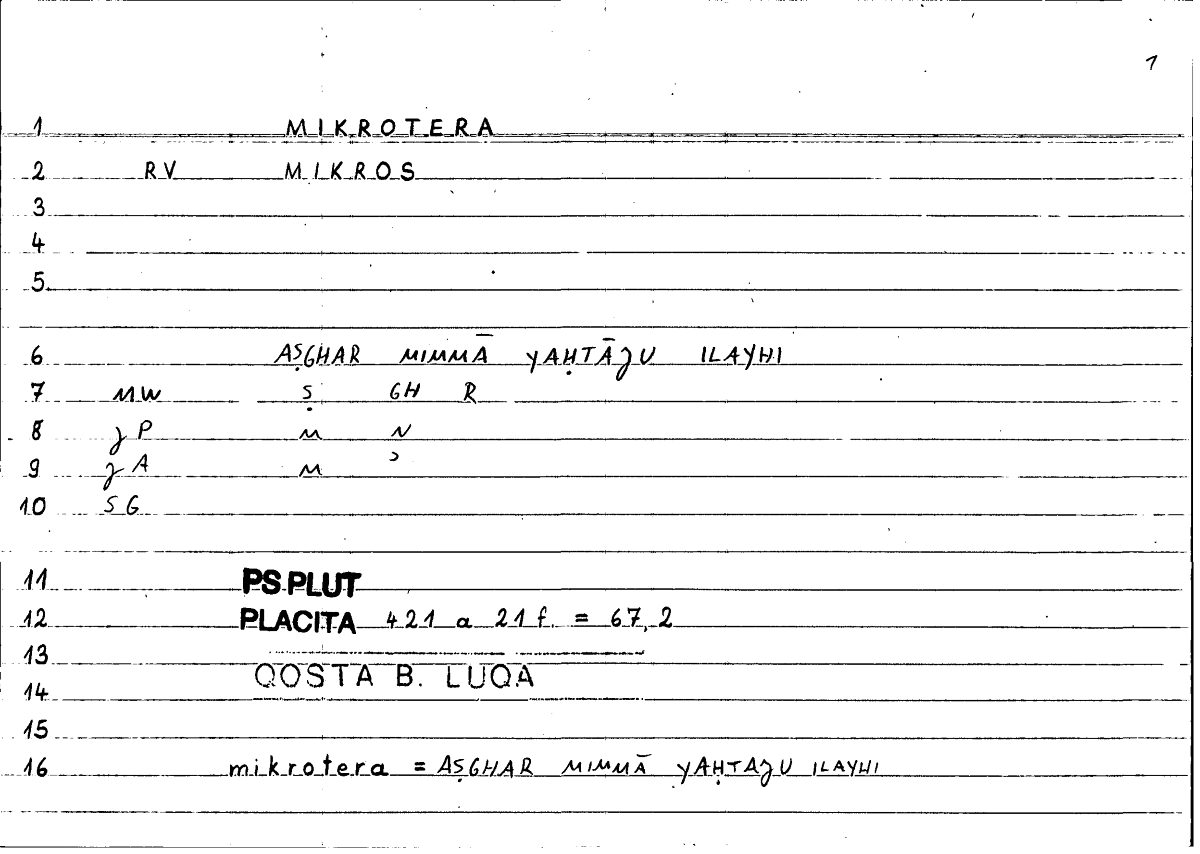 1
1 MIKROTERA
2 RV MIKROS
3
4
5
6 AṢGHAR MIMMĀ YAḤTĀJU ILAYHI
7 MW Ṣ GH R
8 JP M N
9 JA M ʾ
10 SG
11 PS.PLUT
12 PLACITA 421 a 21 f. = 67,2
13
QOSTA B. LUQA
14
15
16 mikrotera = AṢGHAR MIMMĀ YAḤTAJU ILAYHI